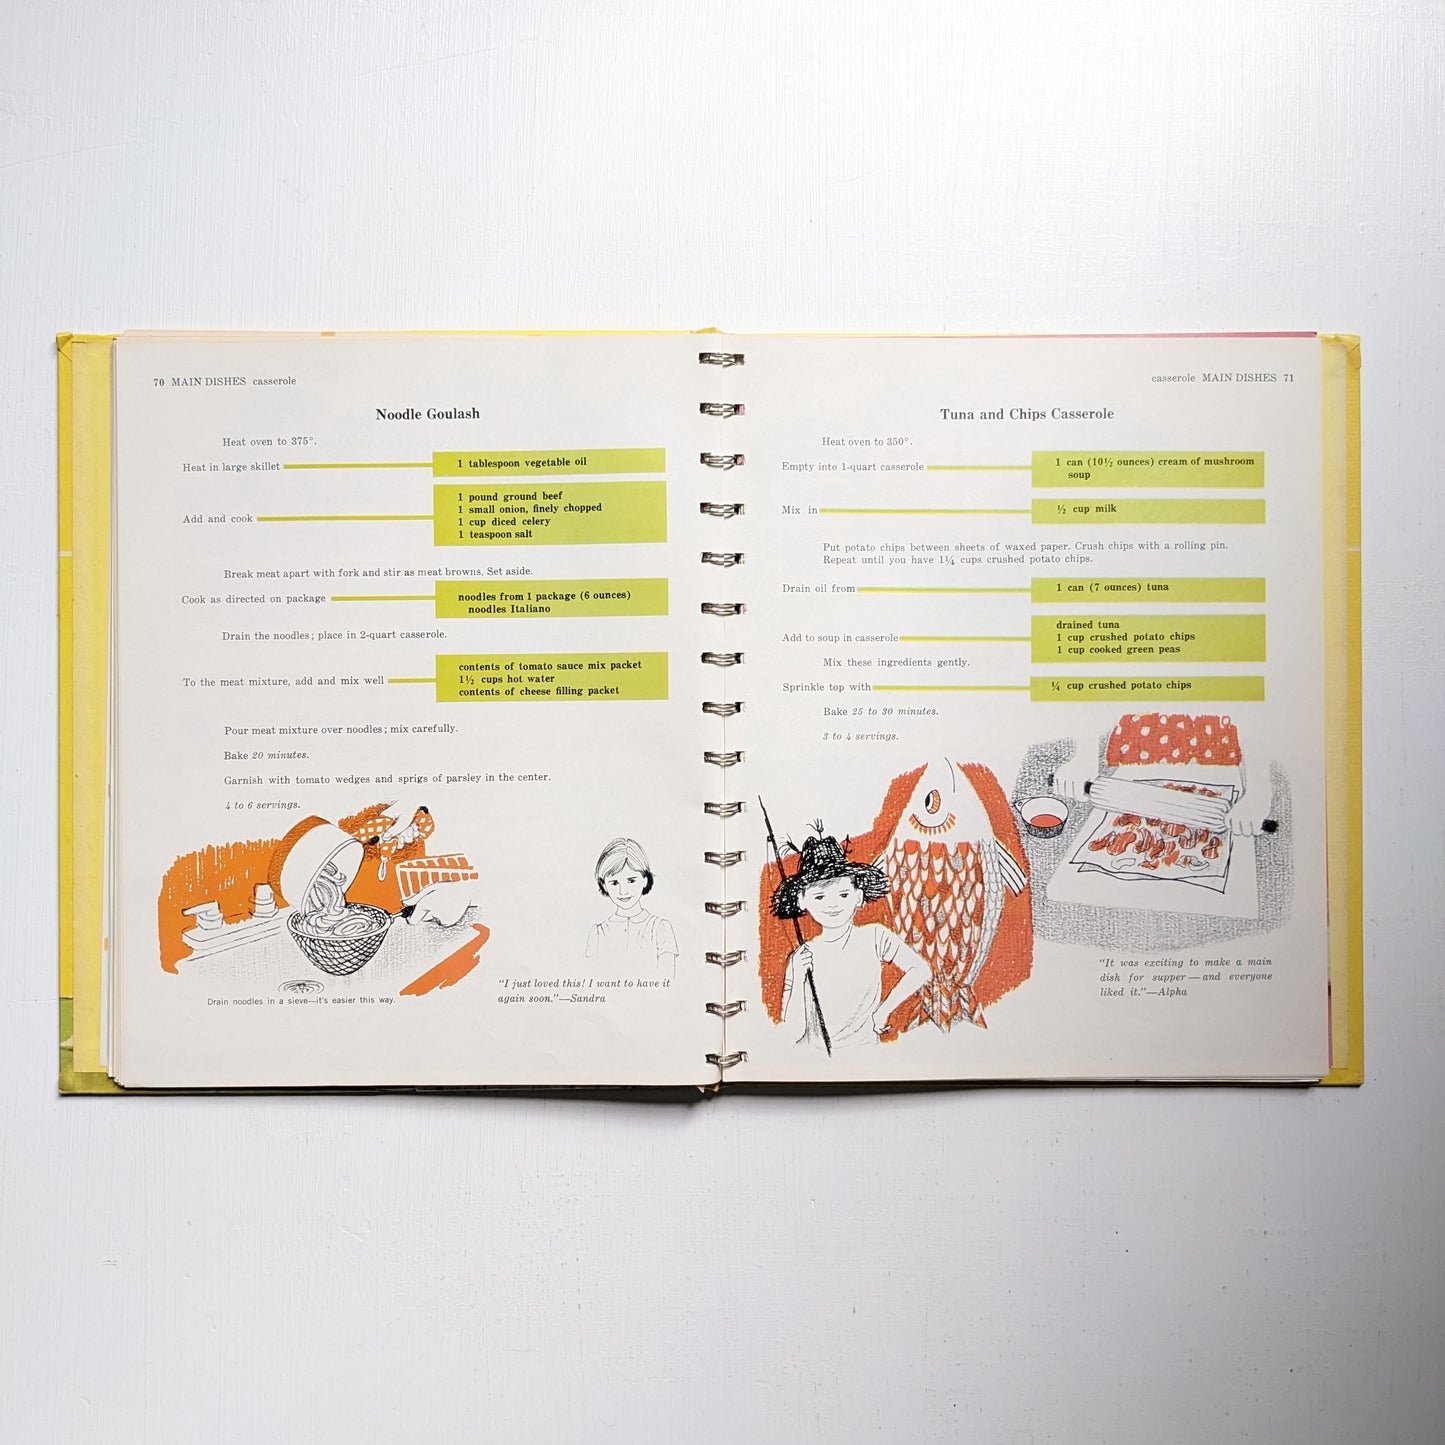 70 MAIN DISHES casserole
Noodle Goulash
Heat oven to 375°.
Heat in large skillet
1 tablespoon vegetable oil
Add and cook
1 pound ground beef
1 small onion, finely chopped
1 cup diced celery
1 teaspoon salt
Break meat apart with fork and stir as meat browns. Set aside.
Cook as directed on package
noodles from 1 package (6 ounces)
noodles Italiano
Drain the noodles; place in 2-quart casserole.
To the meat mixture, add and mix well
contents of tomato sauce mix packet
1½ cups hot water
contents of cheese filling packet
Pour meat mixture over noodles; mix carefully.
Bake 20 minutes.
Garnish with tomato wedges and sprigs of parsley in the center.
4 to 6 servings.
Drain noodles in a sieve—it's easier this way.
"I just loved this! I want to have it
again soon."—Sandra
casserole MAIN DISHES 71
Tuna and Chips Casserole
Heat oven to 350°.
Empty into 1-quart casserole
1 can (10½ ounces) cream of mushroom
soup
Mix in
½ cup milk
Put potato chips between sheets of waxed paper. Crush chips with a rolling pin.
Repeat until you have 1¼ cups crushed potato chips.
Drain oil from
1 can (7 ounces) tuna
Add to soup in casserole
drained tuna
1 cup crushed potato chips
1 cup cooked green peas
Mix these ingredients gently.
Sprinkle top with
¼ cup crushed potato chips
Bake 25 to 30 minutes.
3 to 4 servings.
"It was exciting to make a main
dish for supper—and everyone
liked it."—Alpha